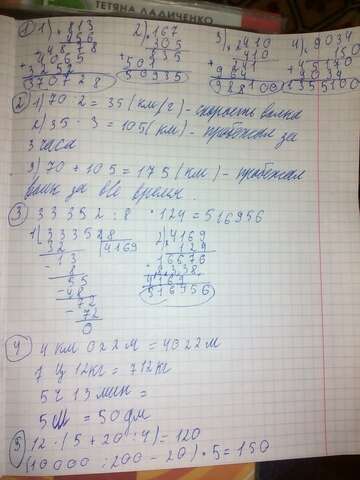 ТЕТЯНА ЛАДИЧЕНКО
1) 1) 813
456
4878
+ 4065
370728
2) 167
305
835
501
50935
3) 2410
410
+ 241
964
988100
4) 9034
150
+ 45170
9034
1355100
2) 1) 70 : 2 = 35 (км/ч) - скорость волка
2) 35 · 3 = 105 (км) - пробежал за
3 часа
3) 70 + 105 = 175 (км) - пробежал
волк за всё время.
3) 33352 : 8 · 124 = 516956
1) 33352 8
32 4169
- 13
8
- 55
48
- 72
72
0
2) 4169
124
16676
+ 8338
4169
516956
4) 4 км 022 м = 4022 м
7 ц 12 кг = 712 кг
5 ч 13 мин =
5 м = 50 дм
5) 12 · (5 + 20 : 4) = 120
(10000 : 200 - 20) · 5 = 150